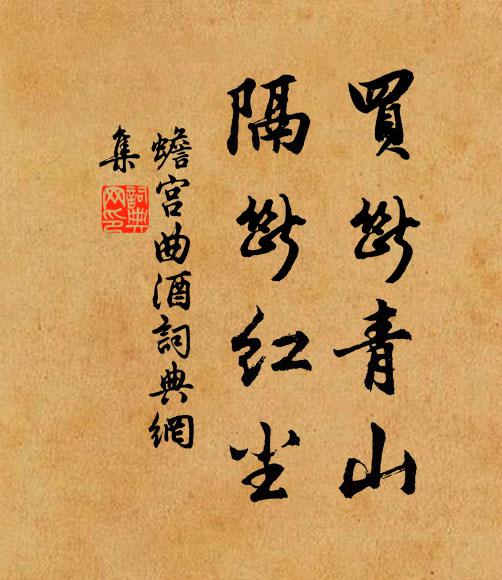 買斷青山
隔斷红尘
蟾宮曲酒詞典網
集
詞典
网印